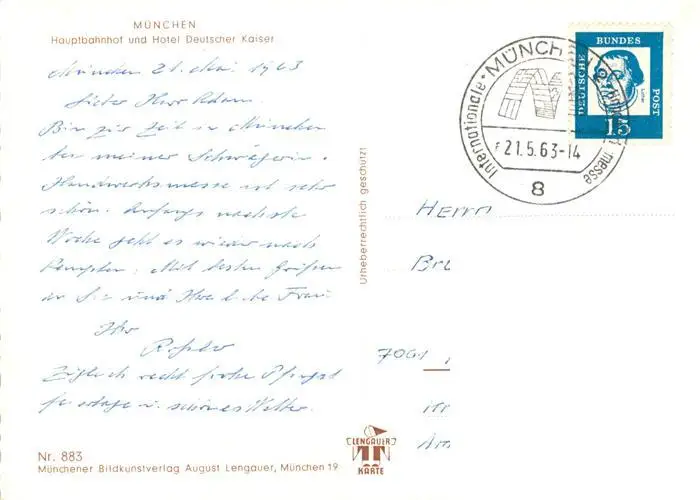 MÜNCHEN
Hauptbahnhof und Hotel Deutscher Kaiser
München 21. Mai 1963
Lieber Herr Adam.
Bin zur Zeit in München
bei meiner Schwägerin.
Handwerksmesse ist sehr
schön. Anfangs nächste
Woche geht es wieder nach
Kempten. Mit besten Grüßen
an Sie und Ihre liebe Frau
Ihr
Zugleich recht frohe Pfingst
feiertage u. schönes Wetter.
Nr. 883
Münchener Bildkunstverlag August Lengauer, München 19
Urheberrechtlich geschützt
LENGAUER
KARTE
Internationale MÜNCH messe
21.5.63-14
8
DEUTSCHE BUNDES POST
15
HERRN
BRU
7061